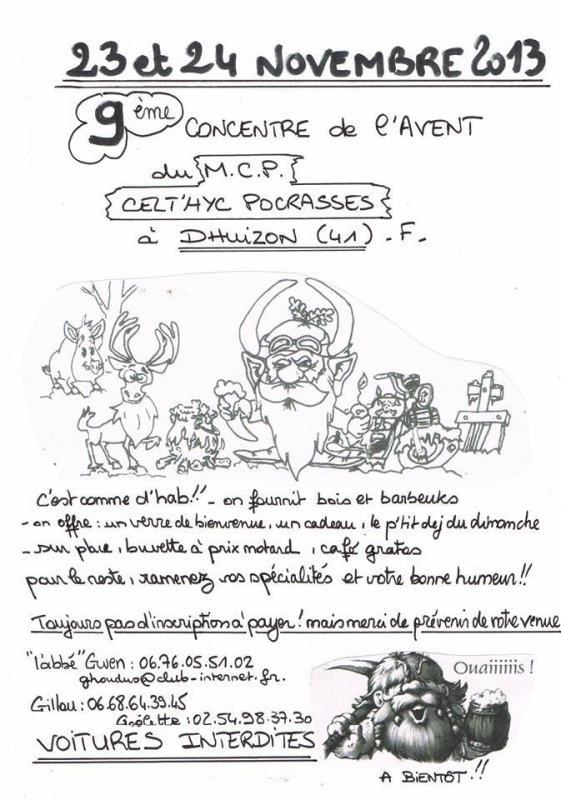 23 et 24 NOVEMBRE 2013
9ème CONCENTRE de l'AVENT
du M.C.P.
CELT'HYC POCRASSES
à DHUIZON (41) - F -
C'est comme d'hab!! - on fournit bois et barbeuks
- on offre : un verre de bienvenue, un cadeau, le p'tit dej du dimanche
- sur place, buvette à prix motard, café gratos
pour le reste, ramenez vos spécialités et votre bonne humeur!!
Toujours pas d'inscriptions à payer! mais merci de prévenir de votre venue
"l'abbé" Gwen : 06.76.05.51.02
@club-internet.fr.
Gillou : 06.68.64.39.45
: 02.54.98.37.30
VOITURES INTERDITES
Ouaiiiiiis !
A BIENTÔT !!